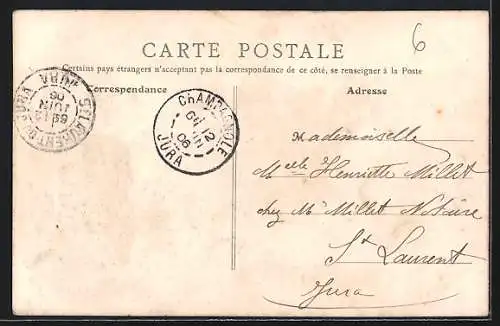 6
CARTE POSTALE
Certains pays étrangers n'acceptant pas la correspondance de ce côté, se renseigner à la Poste
Correspondance
Adresse
ST LAURENT DU JURA
12
JUIN
06
JURA
CHAMPAGNOLE
12
JUIN
06
JURA
Mademoiselle
Melle Henriette Millet
chez Mr Millet Notaire
St Laurent
Jura